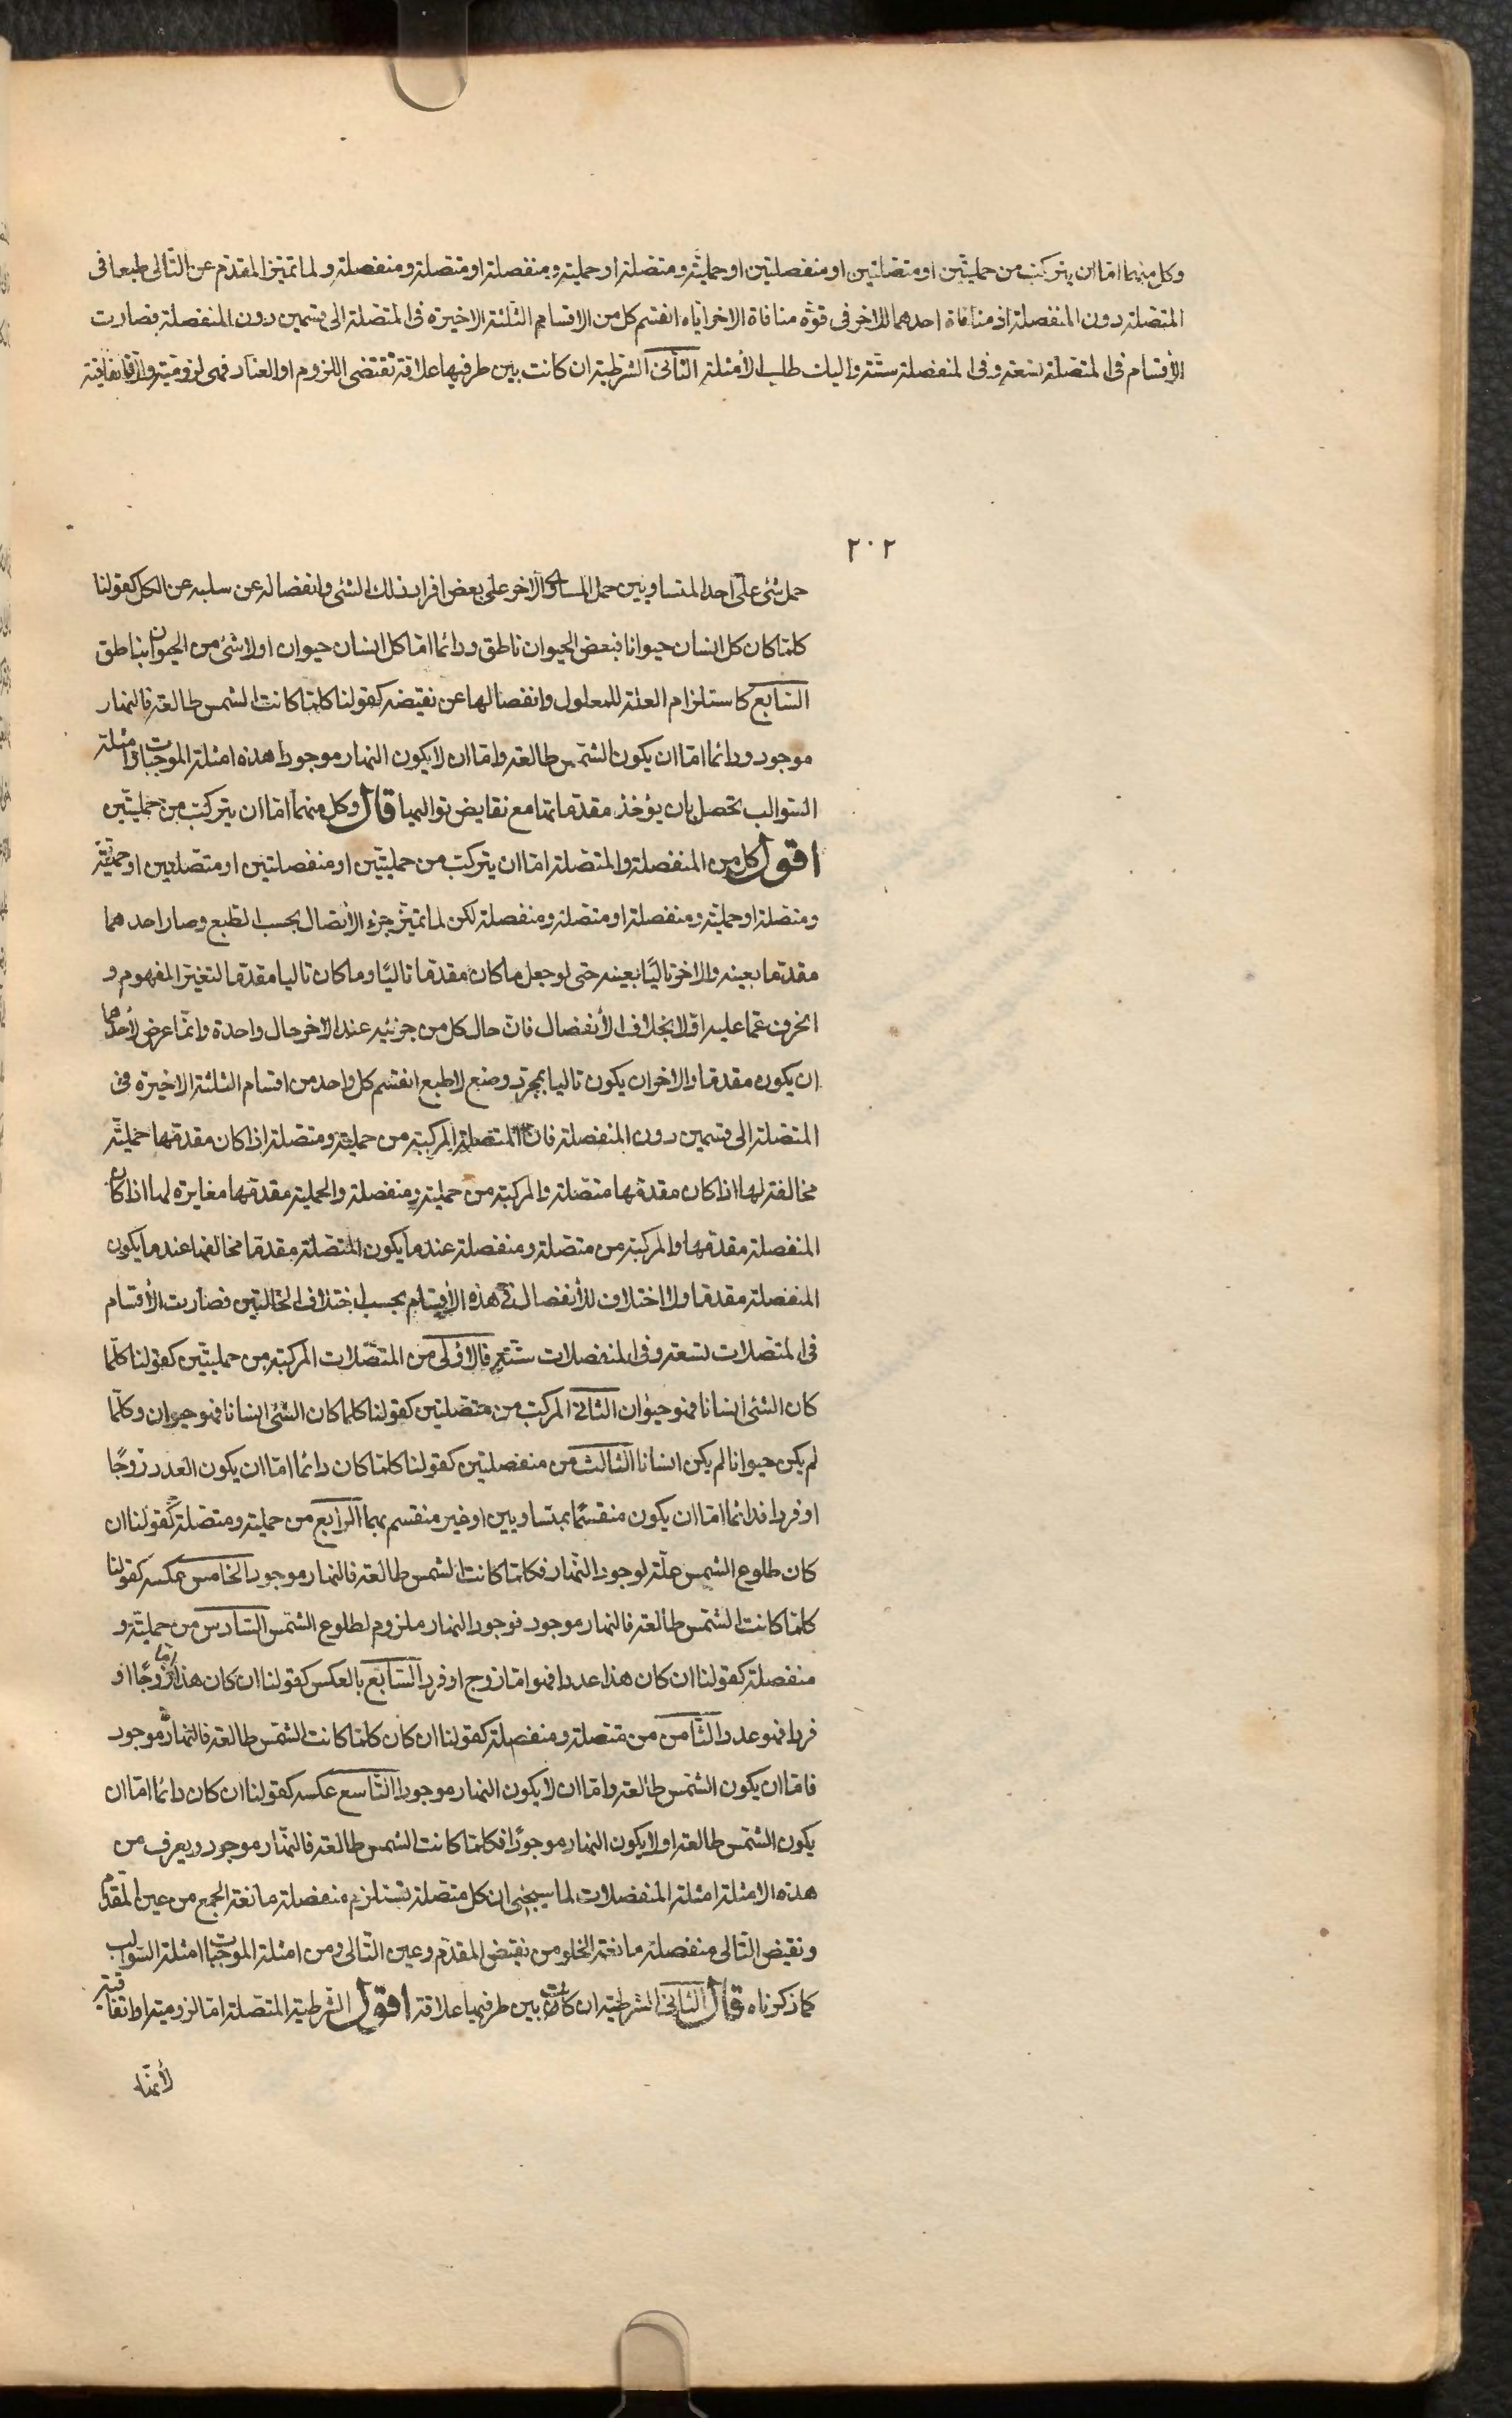 وكل منهما اما ان يتركب من حمليتين او متصلتين او منفصلتين او حملية ومتصلة او حملية ومنفصلة او متصلة ومنفصلة ولما تميز المقدم عن التالى طبعا فى
المتصلة دون المنفصلة اذ منافاة احدهما للاخر فى قوة منافاة الاخر اياه انقسم كل من الاقسام الثلثة الاخيرة فى المتصلة الى قسمين دون المنفصلة فصارت
الأقسام فى المتصلة تسعة وفى المنفصلة ستة واليك طلب الأمثلة الثانى الشرطية ان كانت بين طرفيها علاقة تقتضى اللزوم او العناد فهى لزومية والا فاتفاقية
٢٠٢
حمل شئ على احد المتساويين حمل المساوى الاخر على بعض افراد ذلك الشئ وانفصاله عن سلبه عن الكل كقولنا
كلما كان كل انسان حيوانا فبعض الحيوان ناطق ودائما اما كل انسان حيوان او لا شئ من الحيوان بناطق
السابع كاستلزام العلة للمعلول وانفصالها عن نقيضه كقولنا كلما كانت الشمس طالعة فالنهار
موجود ودائما اما ان يكون الشمس طالعة واما ان لا يكون النهار موجودا هذه امثلة الموجبات وامثلة
السوالب تحصل بان يؤخذ مقدماتها مع نقايض تواليها قال وكل منهما اما ان يتركب من حمليتين
اقول كل من المنفصلة والمتصلة اما ان يتركب من حمليتين او منفصلتين او متصلتين او حملية
ومتصلة او حملية ومنفصلة او متصلة ومنفصلة لكن لما تميز جزء الأتصال بحسب الطبع وصار احدهما
مقدما بعينه والاخر تاليا بعينه حتى لو جعل ما كان مقدما تاليا وما كان تاليا مقدما لتغير المفهوم و
انحرف عما عليه اولا بخلاف الأنفصال فان حال كل من جزئيه عند الاخر حال واحدة وانما عرض لأحدهما
ان يكون مقدما والاخر ان يكون تاليا بمجرد وضع لا طبع انقسم كل واحد من اقسام الثلثة الاخيرة فى
المتصلة الى قسمين دون المنفصلة فان المتصلة المركبة من حملية ومتصلة اذا كان مقدمها حملية
مخالفة لها اذا كان مقدمها متصلة والمركبة من حملية ومنفصلة والحملية مقدمها مغايرة لما اذا كان
المنفصلة مقدمها والمركبة من متصلة ومنفصلة عندما يكون المتصلة مقدما مخالفها عندما يكون
المنفصلة مقدما ولا اختلاف للأنفصال فى هذه الأقسام بحسب اختلاف الحالتين فصارت الأقسام
فى المتصلات تسعة وفى المنفصلات ستة فالأولى من المتصلات المركبة من حمليتين كقولنا كلما
كان الشئ انسانا فهو حيوان الثانى المركب من متصلتين كقولنا كلما كان الشئ انسانا فهو حيوان وكلما
لم يكن حيوانا لم يكن انسانا الثالث من منفصلتين كقولنا كلما كان دائما اما ان يكون العدد زوجا
او فردا فدائما اما ان يكون منقسما بمتساويين او غير منقسم بهما الرابع من حملية ومتصلة كقولنا ان
كان طلوع الشمس علة لوجود النهار فكلما كانت الشمس طالعة فالنهار موجود الخامس عكسه كقولنا
كلما كانت الشمس طالعة فالنهار موجود فوجود النهار ملزوم لطلوع الشمس السادس من حملية و
منفصلة كقولنا ان كان هذا عددا فهو اما زوج او فرد السابع بالعكس كقولنا ان كان هذا اما زوجا او
فردا فهو عدد الثامن من متصلة ومنفصلة كقولنا ان كان كلما كانت الشمس طالعة فالنهار موجود
فاما ان يكون الشمس طالعة واما ان لا يكون النهار موجودا التاسع عكسه كقولنا ان كان دائما اما ان
يكون الشمس طالعة او لا يكون النهار موجودا فكلما كانت الشمس طالعة فالنهار موجود ويعرف من
هذه الامثلة امثلة المنفصلات لما سيجئ ان كل متصلة تستلزم منفصلة مانعة الجمع من عين المقدم
ونقيض التالى منفصلة مانعة الخلو من نقيض المقدم وعين التالى ومن امثلة الموجبات امثلة السوالب
كما ذكرناه قال الثانى الشرطية ان كانت بين طرفيها علاقة اقول الشرطية المتصلة اما لزومية او اتفاقية
لأنها